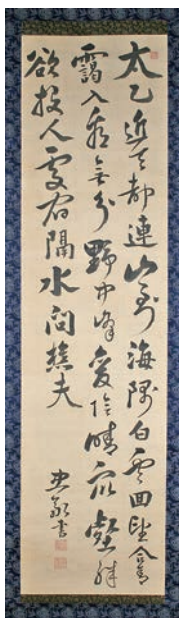 太乙近天都連山到海隅白雲回望合青
靄入看無分野中峰變陰晴衆壑殊
欲投人處宿隔水問樵夫
書